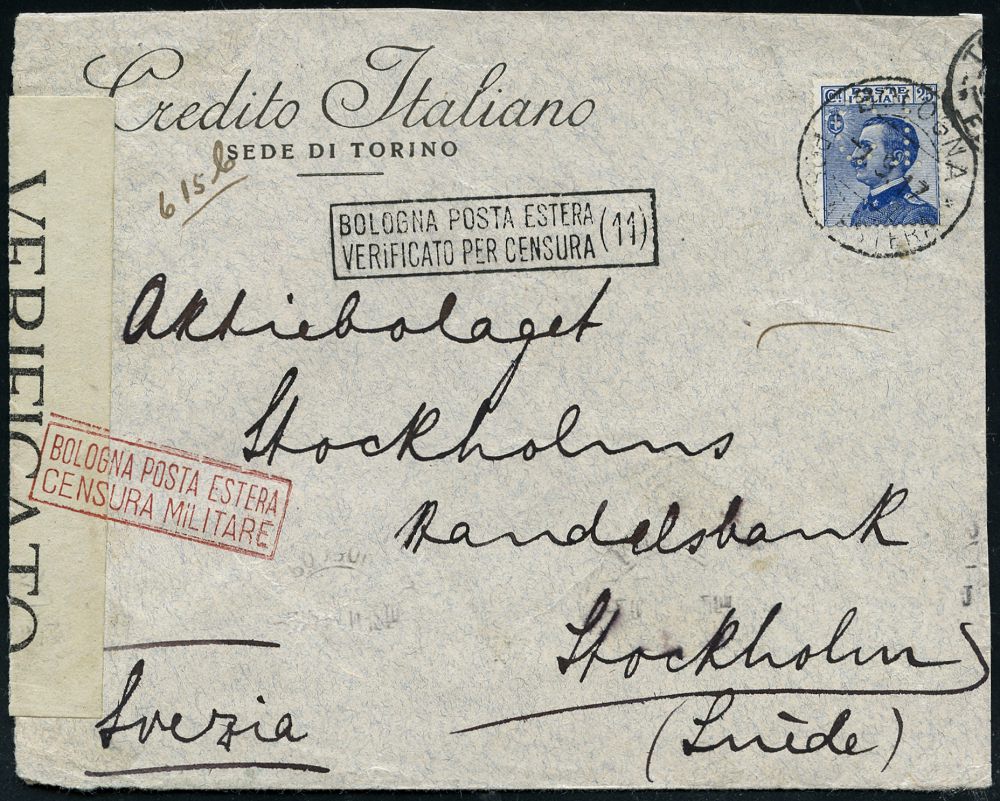 Credito Italiano
SEDE DI TORINO
615
Ct. POSTE ITALIANE 25
BOLOGNA
BOLOGNA POSTA ESTERA
VERIFICATO PER CENSURA (11)
VERIFICATO
Aktiebolaget
Stockholms
Handelsbank
Stockholm
(Suède)
Svezia
BOLOGNA POSTA ESTERA
CENSURA MILITARE